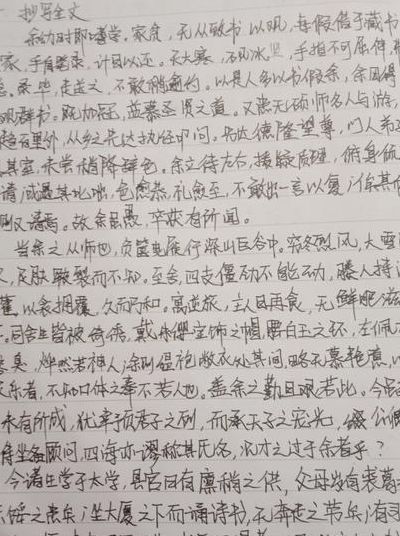 一. 抄写全文
余幼时即嗜学。家贫，无从致书以观，每假借于藏书
家，手自笔录，计日以还。天大寒，砚冰坚，手指不可屈伸
怠。录毕，走送之，不敢稍逾约。以是人多以书假余，余因得
观群书。既加冠，益慕圣贤之道。又患无硕师名人与游，
趋百里外，从乡之先达执经叩问。先达德隆望尊，门人弟
其室，未尝稍降辞色。余立侍左右，援疑质理，俯身倾
请；或遇其叱咄，色愈恭，礼愈至，不敢出一言以复；俟其
则又请焉。故余虽愚，卒获有所闻。
当余之从师也，负箧曳屣行深山巨谷中。穷冬烈风，大雪
尺，足肤皲裂而不知。至舍，四支僵劲不能动，媵人持
灌，以衾拥覆，久而乃和。寓逆旅，主人日再食，无鲜肥滋
。同舍生皆被绮绣，戴朱缨宝饰之帽，腰白玉之环，左佩
容臭，烨然若神人；余则缊袍敝衣处其间，略无慕艳意，以
足乐者，不知口体之奉不若人也。盖余之勤且艰若此。今
未有所成，犹幸预君子之列，而承天子之宠光，缀公卿
侍坐备顾问，四海亦谬称其氏名，况才之过于余者乎？
今诸生学于太学，县官日有廪稍之供，父母岁有裘葛
冻馁之患矣；坐大厦之下而诵诗书，无奔走之劳矣；有司